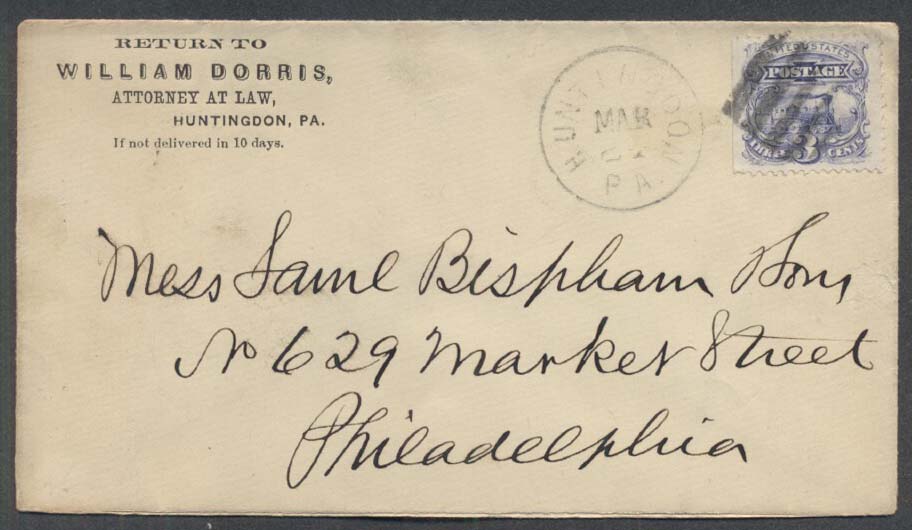 RETURN TO
WILLIAM DORRIS,
ATTORNEY AT LAW,
HUNTINGDON, PA.
If not delivered in 10 days.
HUNTINGDON
MAR
PA.
UNITED STATES
POSTAGE
THREE 3 CENTS
Mess Saml Bispham Sons
No 629 Market Street
Philadelphia